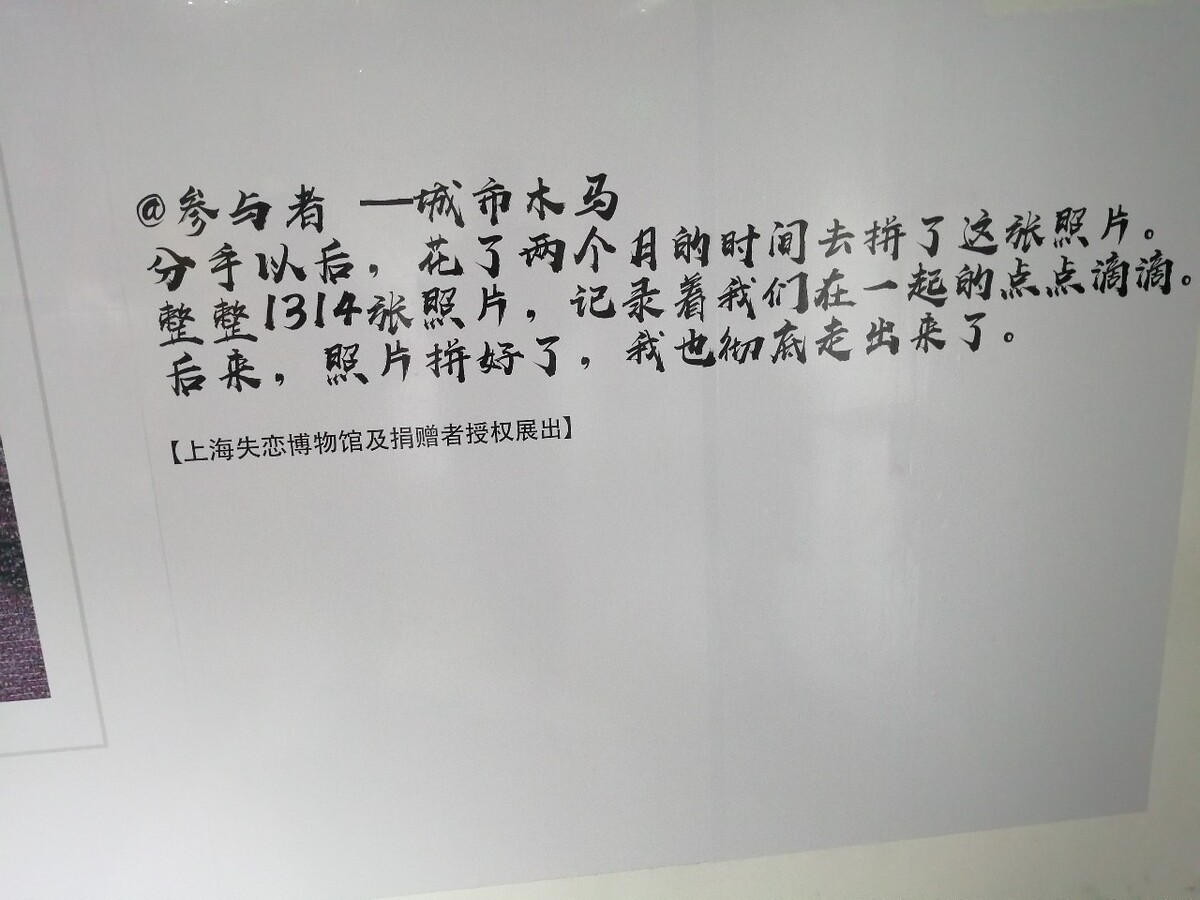 @参与者 —城市木马
分手以后，花了两个月的时间去拼了这张照片。
整整1314张照片，记录着我们在一起的点点滴滴。
后来，照片拼好了，我也彻底走出来了。
【上海失恋博物馆及捐赠者授权展出】